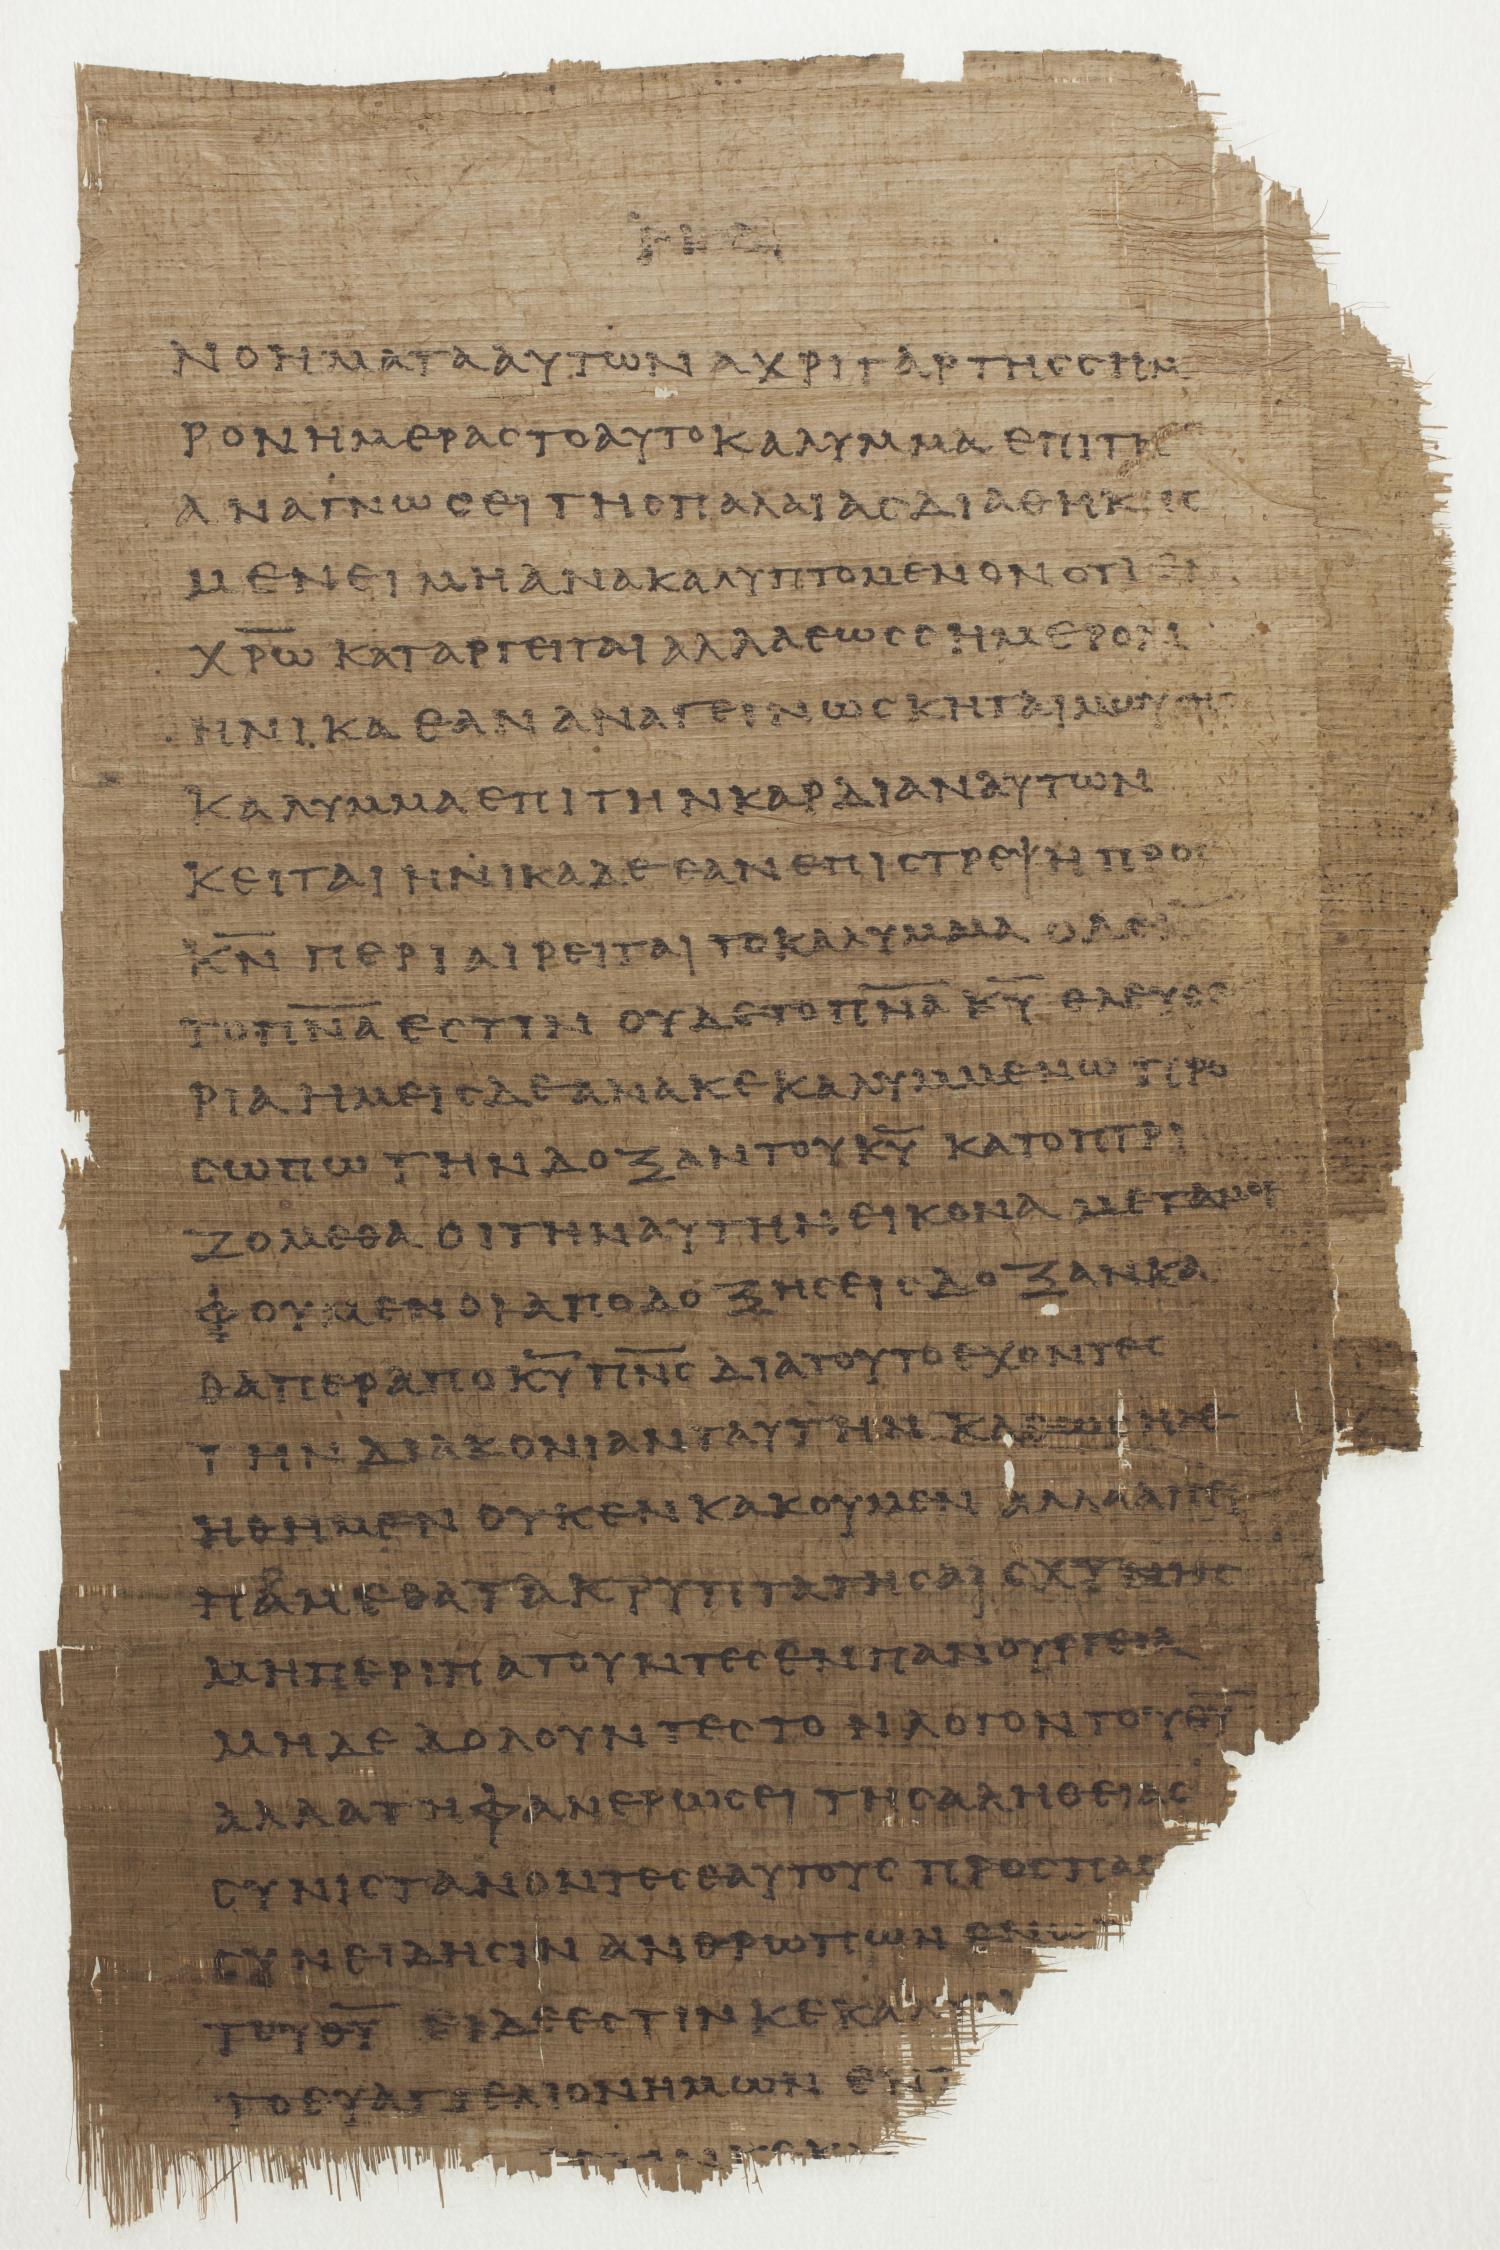 ΝΟΗΜΑΤΑ ΑΥΤΩΝ ΑΧΡΙ ΓΑΡ ΤΗΣ ΣΗΜ
ΡΟΝ ΗΜΕΡΑΣ ΤΟ ΑΥΤΟ ΚΑΛΥΜΜΑ ΕΠΙ ΤΗ
ΑΝΑΓΝΩΣΕΙ ΤΗΣ ΠΑΛΑΙΑΣ ΔΙΑΘΗΚΗΣ
ΜΕΝΕΙ ΜΗ ΑΝΑΚΑΛΥΠΤΟΜΕΝΟΝ ΟΤΙ ΕΝ
Χ̅Ρ̅Ω̅ ΚΑΤΑΡΓΕΙΤΑΙ ΑΛΛΑ ΕΩΣ ΣΗΜΕΡΟΝ
ΗΝΙΚΑ ΕΑΝ ΑΝΑΓΕΙΝΩΣΚΗΤΑΙ ΜΩΥΣΗΣ
ΚΑΛΥΜΜΑ ΕΠΙ ΤΗΝ ΚΑΡΔΙΑΝ ΑΥΤΩΝ
ΚΕΙΤΑΙ ΗΝΙΚΑ ΔΕ ΕΑΝ ΕΠΙΣΤΡΕΨΗ ΠΡΟΣ
Κ̅Ν̅ ΠΕΡΙΑΙΡΕΙΤΑΙ ΤΟ ΚΑΛΥΜΜΑ Ο ΔΕ Κ̅Σ̅
ΤΟ Π̅Ν̅Α̅ ΕΣΤΙΝ ΟΥ ΔΕ ΤΟ Π̅Ν̅Α̅ Κ̅Υ̅ ΕΛΕΥΘΕ
ΡΙΑ ΗΜΕΙΣ ΔΕ ΑΝΑΚΕΚΑΛΥΜΜΕΝΩ ΠΡΟ
ΣΩΠΩ ΤΗΝ ΔΟΞΑΝ ΤΟΥ Κ̅Υ̅ ΚΑΤΟΠΤΡΙ
ΖΟΜΕΘΑ ΟΙ ΤΗΝ ΑΥΤΗΝ ΕΙΚΟΝΑ ΜΕΤΑΜΟΡ
ΦΟΥΜΕΝΟΙ ΑΠΟ ΔΟΞΗΣ ΕΙΣ ΔΟΞΑΝ ΚΑ
ΘΑΠΕΡ ΑΠΟ Κ̅Υ̅ Π̅Ν̅Σ̅ ΔΙΑ ΤΟΥΤΟ ΕΧΟΝΤΕΣ
ΤΗΝ ΔΙΑΚΟΝΙΑΝ ΤΑΥΤΗΝ ΚΑΘΩΣ ΗΛΕ
ΗΘΗΜΕΝ ΟΥΚ ΕΝΚΑΚΟΥΜΕΝ ΑΛΛΑ ΑΠΕΙ
ΠΑΜΕΘΑ ΤΑ ΚΡΥΠΤΑ ΤΗΣ ΑΙΣΧΥΝΗΣ
ΜΗ ΠΕΡΙΠΑΤΟΥΝΤΕΣ ΕΝ ΠΑΝΟΥΡΓΕΙΑ
ΜΗΔΕ ΔΟΛΟΥΝΤΕΣ ΤΟΝ ΛΟΓΟΝ ΤΟΥ Θ̅Υ̅
ΑΛΛΑ ΤΗ ΦΑΝΕΡΩΣΕΙ ΤΗΣ ΑΛΗΘΕΙΑΣ
ΣΥΝΙΣΤΑΝΟΝΤΕΣ ΕΑΥΤΟΥΣ ΠΡΟΣ ΠΑΣ
ΣΥΝΕΙΔΗΣΙΝ ΑΝΘΡΩΠΩΝ ΕΝΩΠ
ΤΟΥ Θ̅Υ̅ ΕΙ ΔΕ ΕΣΤΙΝ ΚΕΚΑΛΥΜ
ΤΟ ΕΥΑΓΓΕΛΙΟΝ ΗΜΩΝ ΕΝ Τ